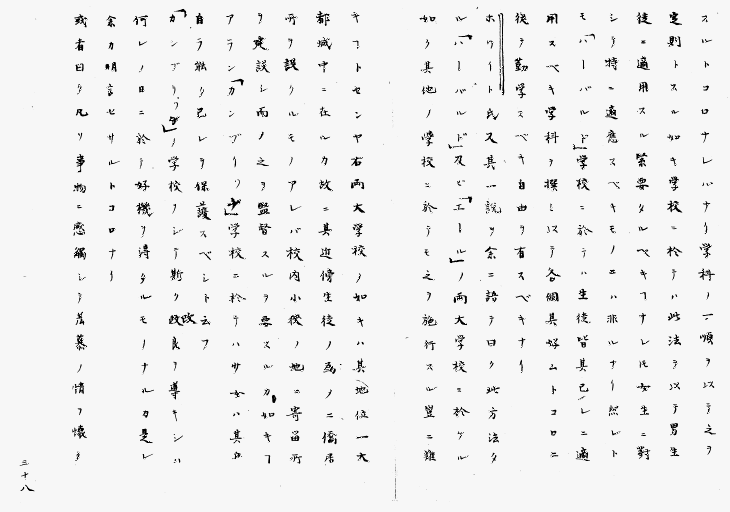 スルトコロナレバナリ学科ノ一順ヲ以テ之ヲ
定則トスル如キ学校ニ於テハ此法ヲ以テ男生
徒ニ適用スル緊要タルベキナレ圧女生ニ對
シテ特ニ適應スベキモノニハ非ルナリ然レト
モ「ハーバルド」学校ニ於テハ生徒皆其己レニ適
用スベキ学科ヲ撰ミ以テ各個其好ムトコロニ
従ヲ勤学スベキ自由ヲ有スベキナリ
ホワイト氏又其一説ヲ余ニ語テ曰ク此方法タ
ル「ハーバルド」及ビ「エール」ノ両大学校ニ於ケル
如ク其他ノ学校ニ於テモ之ヲ施行スル豈ニ難
キコトセンヤ右両大学校ノ如キハ其地位一大
都城中ニ在ルカ故ニ其近傍生徒ノ為メニ僑居
所ヲ設クルモノアレバ校内小後ノ地ニ寄留所
ヲ建設シ而ノ之ヲ監督スルヲ要スルカ如キコ
アラン「カンブイッヂ」学校ニ於テハサ女ハ其
自ラ能ク己レヲ保護スベシト云フ
「カンブリッヂ」ノ学校ヲシテ斯ク改良ヲ導キシハ
何レノ日ニ於テ好機ヲ得タルモノナルカ是レ
余カ明言セサルトコロナリ
或者曰ク凡ソ事物ニ感觸シテ羨慕ノ情ヲ懐ク
三十八